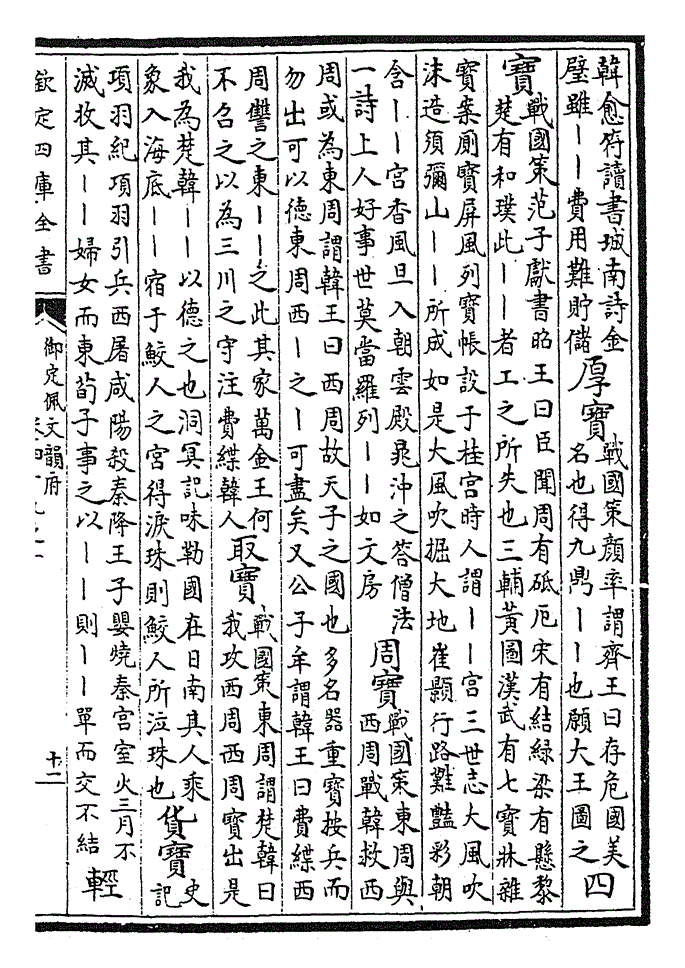 韓愈符讀書城南詩金
璧雖丨丨費用難貯儲
厚寶
戰國策顔率謂齊王曰存危國美
名也得九鼎丨丨也願大王圖之
四
寶
戰國策范子獻書昭王曰臣聞周有砥厄宋有結緑梁有懸黎
楚有和璞此丨丨者工之所失也三輔黄圖漢武有七寶牀雜
寶案厠寶屏風列寶帳設于桂宫時人謂丨丨宫三世志大風吹
沫造須彌山丨丨所成如是大風吹掘大地崔顥行路難豔彩朝
含丨丨宫香風旦入朝雲殿晁沖之答僧法
一詩上人好事世莫當羅列丨丨如文房
周寶
戰國策東周與
西周戰韓救西
周或為東周謂韓王曰西周故天子之國也多名器重寶按兵而
勿出可以德東周西丨之丨可盡矣又公子牟謂韓王曰費緤西
周讐之東丨丨之此其家萬金王何
不召之以為三川之守注費緤韓人
取寶
戰國策東周謂楚韓曰
我攻西周西周寶出是
我為楚韓丨丨以德之也洞冥記味勒國在日南其人乘
象入海底丨丨宿于鮫人之宫得淚珠則鮫人所泣珠也
貨寶
史
記
項羽紀項羽引兵西屠咸陽殺秦降王子嬰燒秦宫室火三月不
滅收其丨丨婦女而東荀子事之以丨丨則丨丨單而交不結
輕
欽定四庫全書
御定佩文韻府
十二